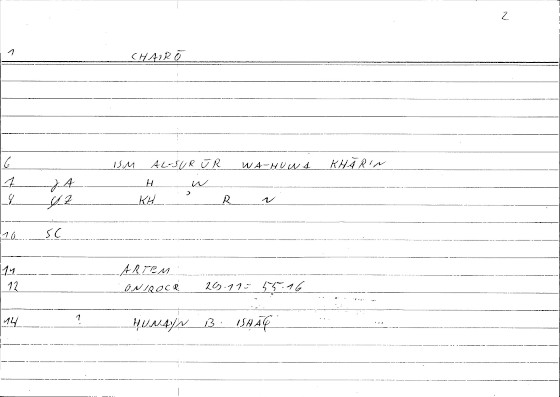 2
1 CHAIRŌ
6 ISM AL-SURŪR WA-HUWA KHĀRIN
7 JA H W
8 YZ KH ʾ R N
10 SC
11 ARTEM
12 ONIROCR 20.11 = 55.16
14 ? HUNAYN B. ISHĀQ